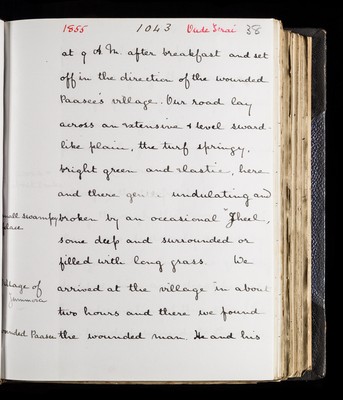 1855 1043 Oude Terai 38
at 9 A.M. after breakfast and set
off in the direction of the wounded
Paasee's village. Our road lay
across an extensive & level sward-
like plain, the turf springy,
bright green and elastic, here
and there gentle undulating and
small swampy place
broken by an occasional "Jheel,
some deep and surrounded or
filled with long grass. We
Village of
arrived at the village in about
two hours and there we found
wounded Paasee
the wounded man. He and his